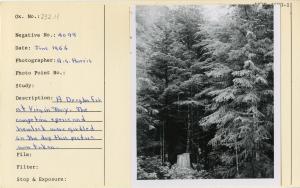 Ox. No.: 232.11
Negative No.: 4098
Date: June 1966
Photographer: A.C. Harris
Photo Point No.:
Study:
Description: A Douglas fir
at Virgin Bay. The
competing spruce and
hemlock were girdled
on the day this picture
was taken.
Film:
Filter:
Stop & Exposure: